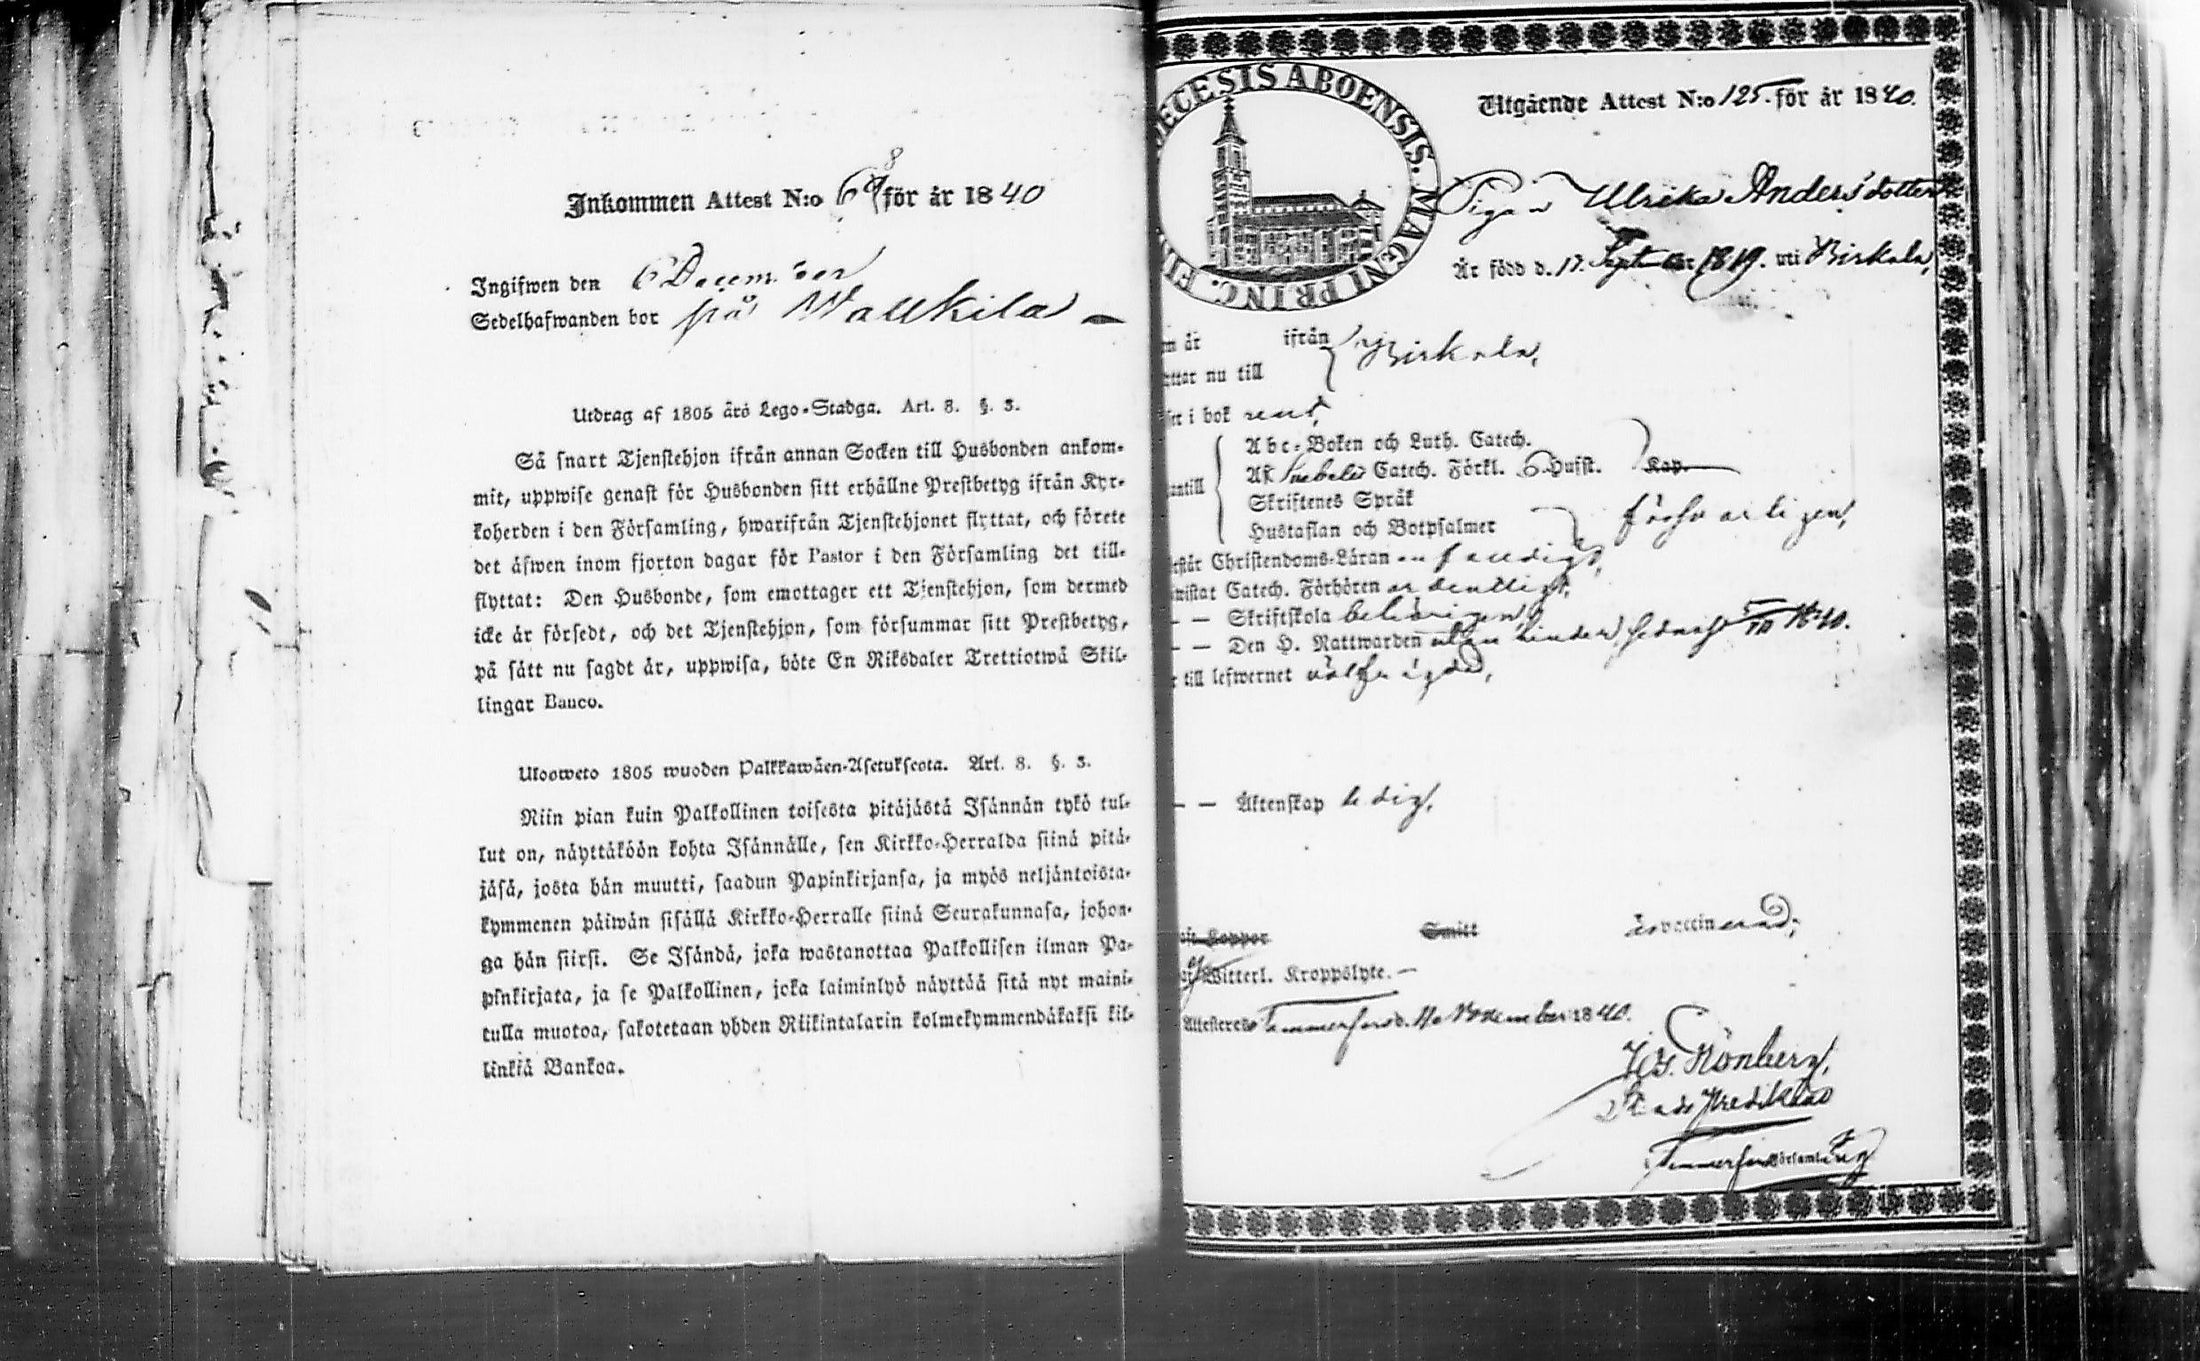 Inkommen Attest N:o 69 8 för år 1840
Ingifwen den 6 December
Sedelhafwanden bor på Wallkila
Utdrag af 1805 års Lego-Stadga. Art. 8. §. 3.
Så snart Tjenstehjon ifrån annan Socken till Husbonden ankom-
mit, uppwise genast för Husbonden sitt erhållne Prestbetyg ifrån Kyr-
koherden i den Församling, hwarifrån Tjenstehjonet flyttat, och förete
det äfwen inom fjorton dagar för Pastor i den Församling det till-
flyttat: Den Husbonde, som emottager ett Tjenstehjon, som dermed
icke är försedt, och det Tjenstehjon, som försummar sitt Prestbetyg,
på sätt nu sagdt är, uppwisa, böte En Riksdaler Trettiotwå Skil-
lingar Banco.
Ulosweto 1805 wuoden Palkkawäen-Asetuksesta. Art. 8. §. 3.
Niin pian kuin Palkollinen toisesta pitäjästä Isännän tykö tul-
lut on, näyttäköön kohta Isännälle, sen Kirkko-Herralda siinä pitä-
jäsä, josta hän muutti, saadun Papinkirjansa, ja myös neljäntoista-
kymmenen päiwän sisällä Kirkko-Herralle siinä Seurakunnasa, johon-
ga hän siirsi. Se Isändä, joka wastanottaa Palkollisen ilman Pa-
pinkirjata, ja se Palkollinen, joka laiminlyö näyttää sitä nyt maini-
tulla muotoa, sakotetaan yhden Riikintalarin kolmekymmendäkaksi kil-
linkiä Bankoa.
DIOECESIS ABOENSIS. MAGNI PRINC. FI
Utgående Attest N:o 125 för år 1840.
Pigan Ulrika Andersdotter
Är född d. 17. September 1819. uti Birkala,
m år ifrån Birkala,
ttar nu till
ser i bok rent,
Abc-Boken och Luth. Catech.
Af Svebelii Catech. Förkl. 6 Husst. Kap.
antill
Skriftenes Språk
Hustaflan och Botpsalmer försvarligen,
rstår Christendoms-Läran enfaldigt,
wistat Catech. Förhören ordentligt,
— — Skriftskola behörigen,
— — Den H. Nattwarden utan hinder, sednast 1840.
r till lefwernet välfrägdad,
— — Äktenskap ledig,
aft Koppor Smitt är vaccinerad;
Witterl. Kroppslyte. —
Attesteres Tammerfors d. 11 November 1840.
Rönberg,
Stads Predikant
Tammerfors Församling